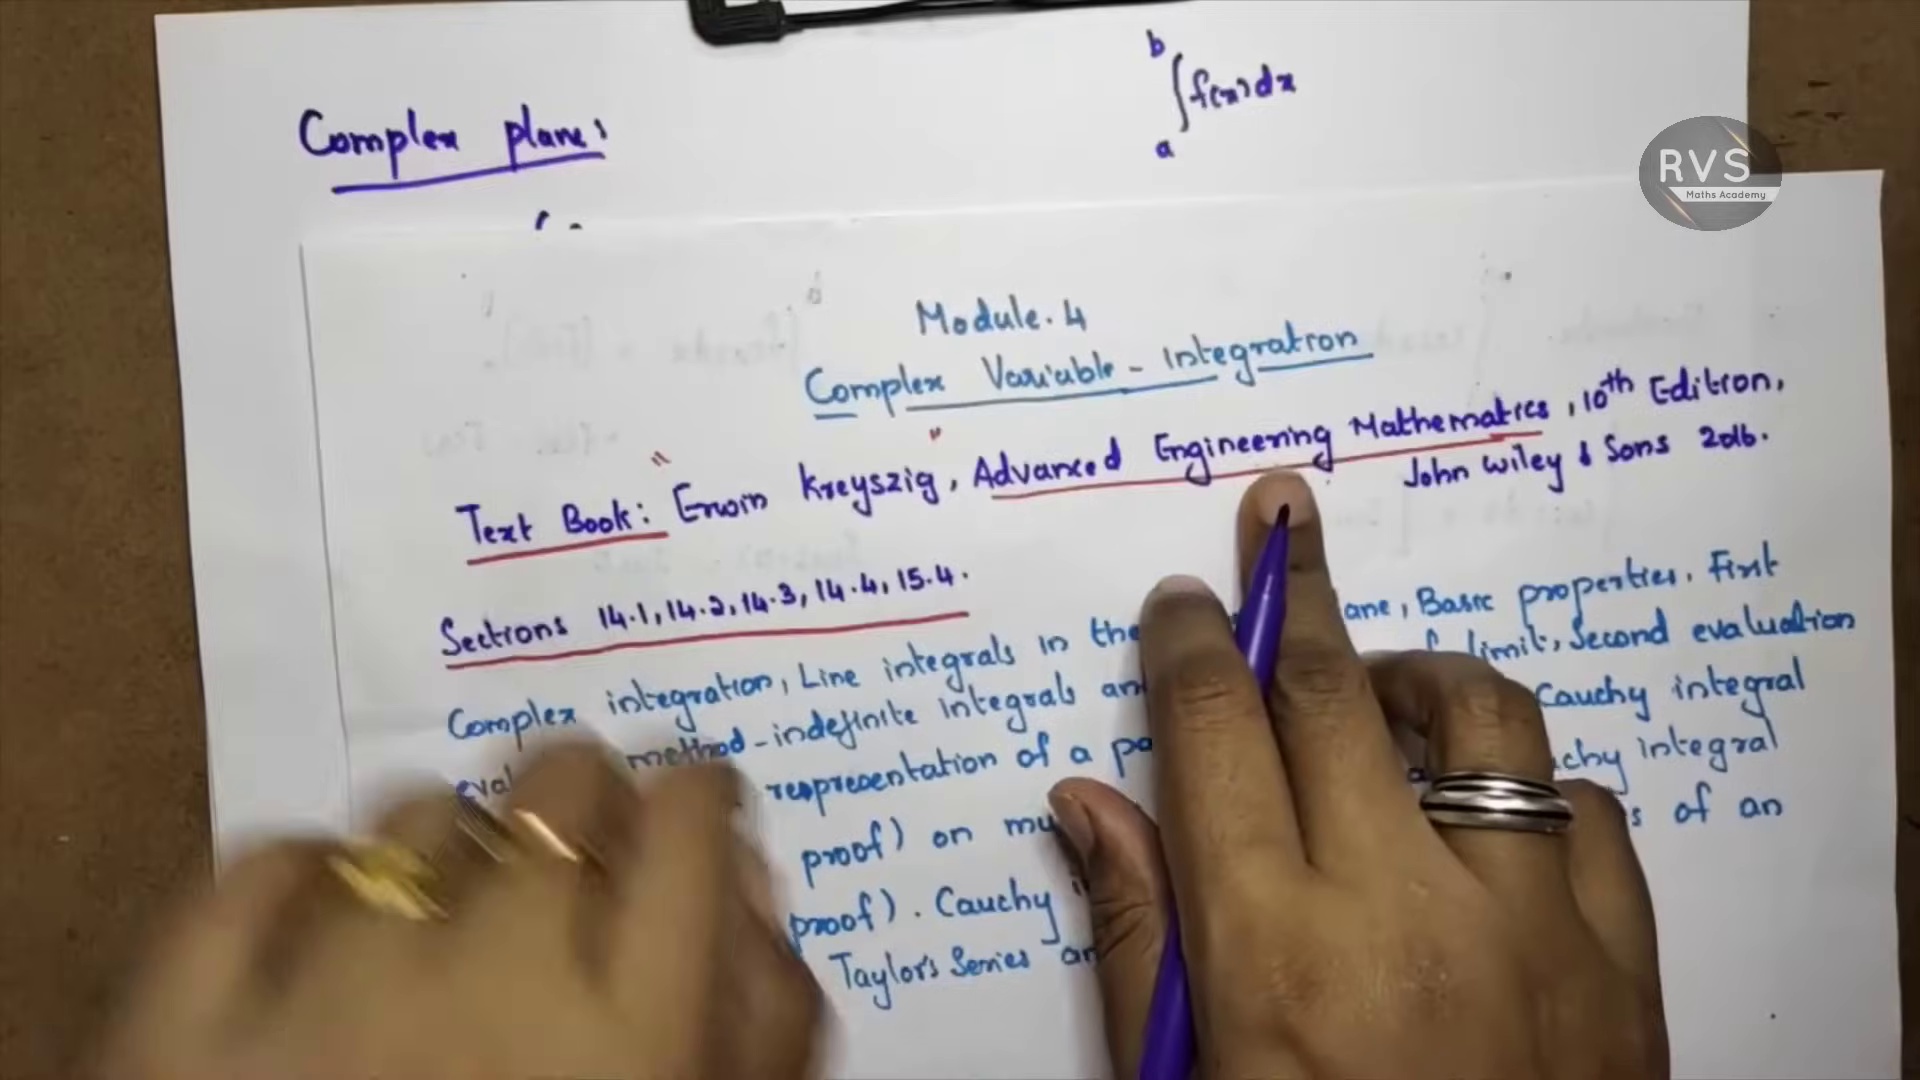 b
∫f(x)dx
a
Complex plane:
RVS
Maths Academy
Module. 4
Complex Variable - integration
Text Book: Erwin Kreyszig, Advanced Engineering Mathematics, 10th Edition,
John Wiley & Sons 2016.
Sections 14.1, 14.2, 14.3, 14.4, 15.4.
Complex integration, Line integrals in the ane, Basic properties. First
eval method-indefinite integrals an limit, Second evaluation
representation of a pa Cauchy integral
proof) on mu chy integral
proof). Cauchy s of an
Taylor's Series an